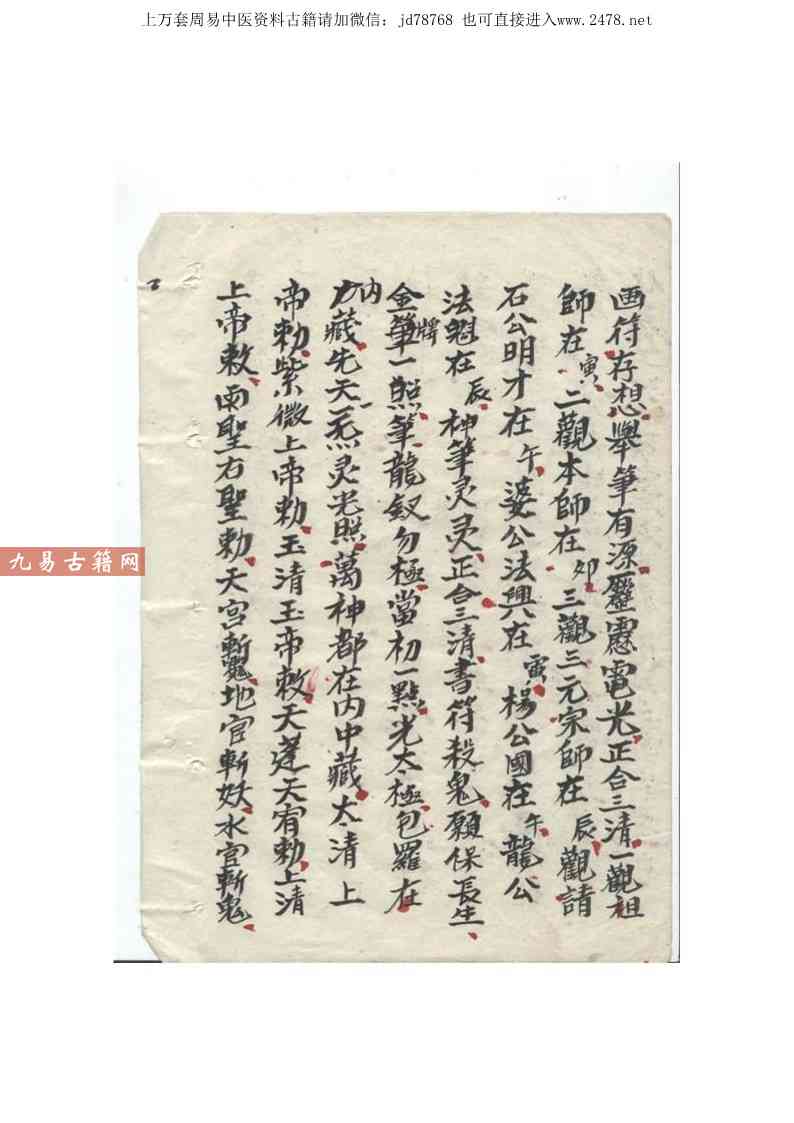 上万套周易中医资料古籍请加微信：jd78768 也可直接进入www.2478.net
画符存想舉筆有源靈電光正合三清一觀祖
師在寅二觀本師在卯三觀三元宗師在辰觀請
石公明才在午婆公法興在寅楊公國在午龍公
法魁在辰神筆灵灵正合三清書符殺鬼願保長生
金牌筆一照筆龍釵勿極當初一點光太極包羅在
内方藏先天一炁灵光照萬神都在内中藏太清上
帝勅紫微上帝勅玉清玉帝敕天蓬天宥勅上清
上帝敕聖右聖勅天宫斬地官斬妖水官斬鬼
九易古籍网